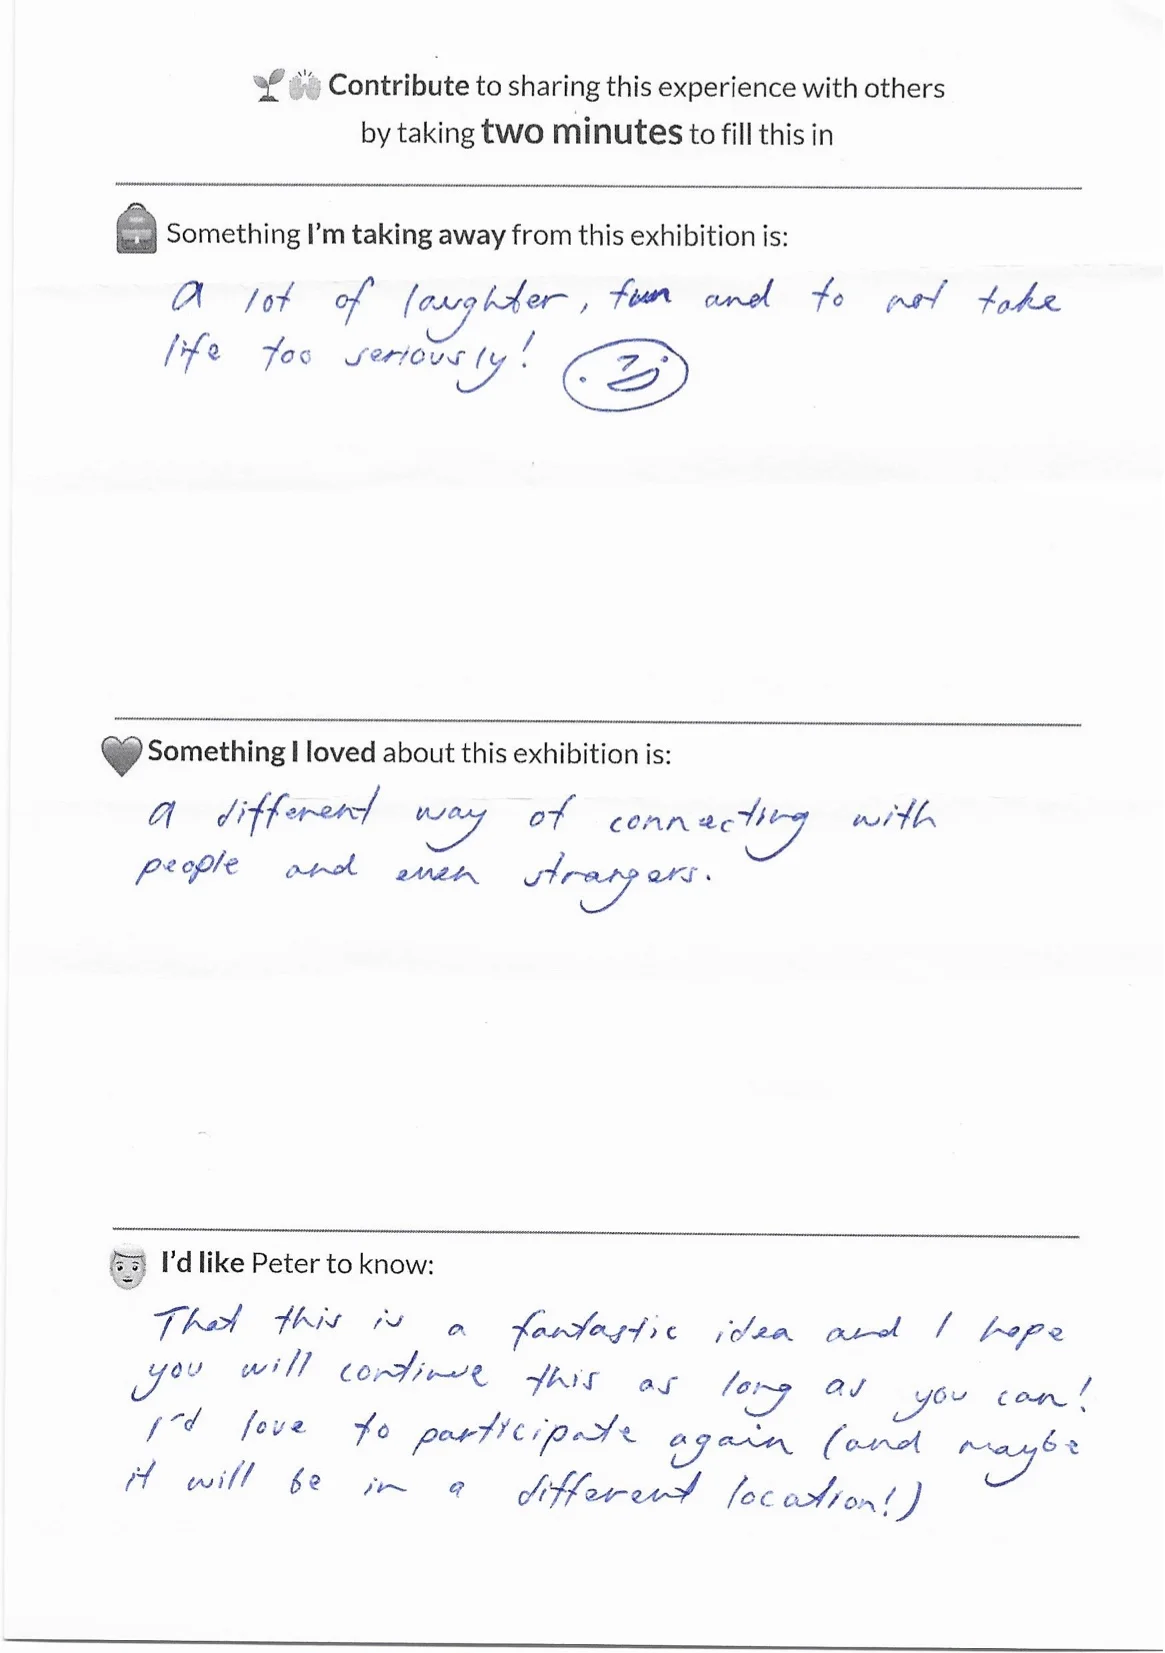 Contribute to sharing this experience with others
by taking two minutes to fill this in
Something I'm taking away from this exhibition is:
A lot of laughter, fun and to not take
life too seriously!
Something I loved about this exhibition is:
A different way of connecting with
people and even strangers.
I'd like Peter to know:
That this is a fantastic idea and I hope
you will continue this as long as you can!
I'd love to participate again (and maybe
it will be in a different location!)